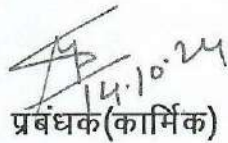 14.10.24
प्रबंधक(कार्मिक)